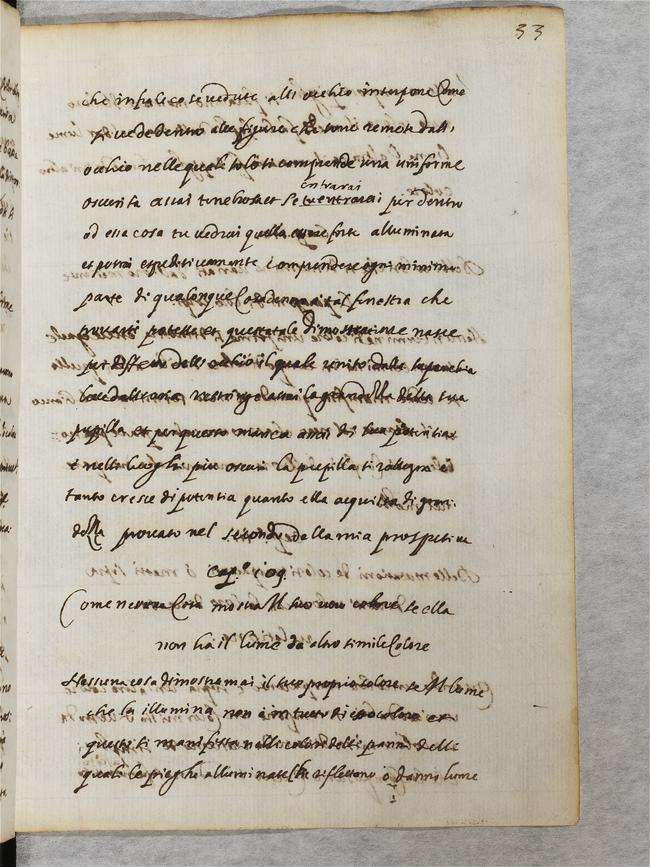 33
che infra le cose vedute all occhio interpone Come
si vede dentro alle figure che sono remote dall,
occhio nelle quali solo ti comprende una uniforme
oscurita assai tenebrosa et se
entrarai
per dentro
ad essa cosa tu vedrai quella forte alluminata
et potrai espeditivamente comprendere ogni minima
parte di qualonque Cosa tal finestra che
trovarsi potesse et questa tale dimostratione nasce
per diffetto dell occhio il quale vinto dalla superchia
luce dell aria restringe assai la grandezza della sua
pupilla et per questo manca assai di sua potentia
e nelli luoghi piu oscuri la pupilla si rallarga e
tanto cresce di potentia quanto ella acquista di gran:
dezza provato nel secondo della mia prospetiva
Cap.º 109.
Come nessuna Cosa mostra il suo vero colore se ella
non ha il lume da altro simile Colore
Nessuna cosa dimostra mai il suo proprio colore se il lume
che la illumina non è in tutto d'esso colore et
questo si manifesta nelli colori delli panni delli
quali le pieghe alluminate che riflettono o danno lume